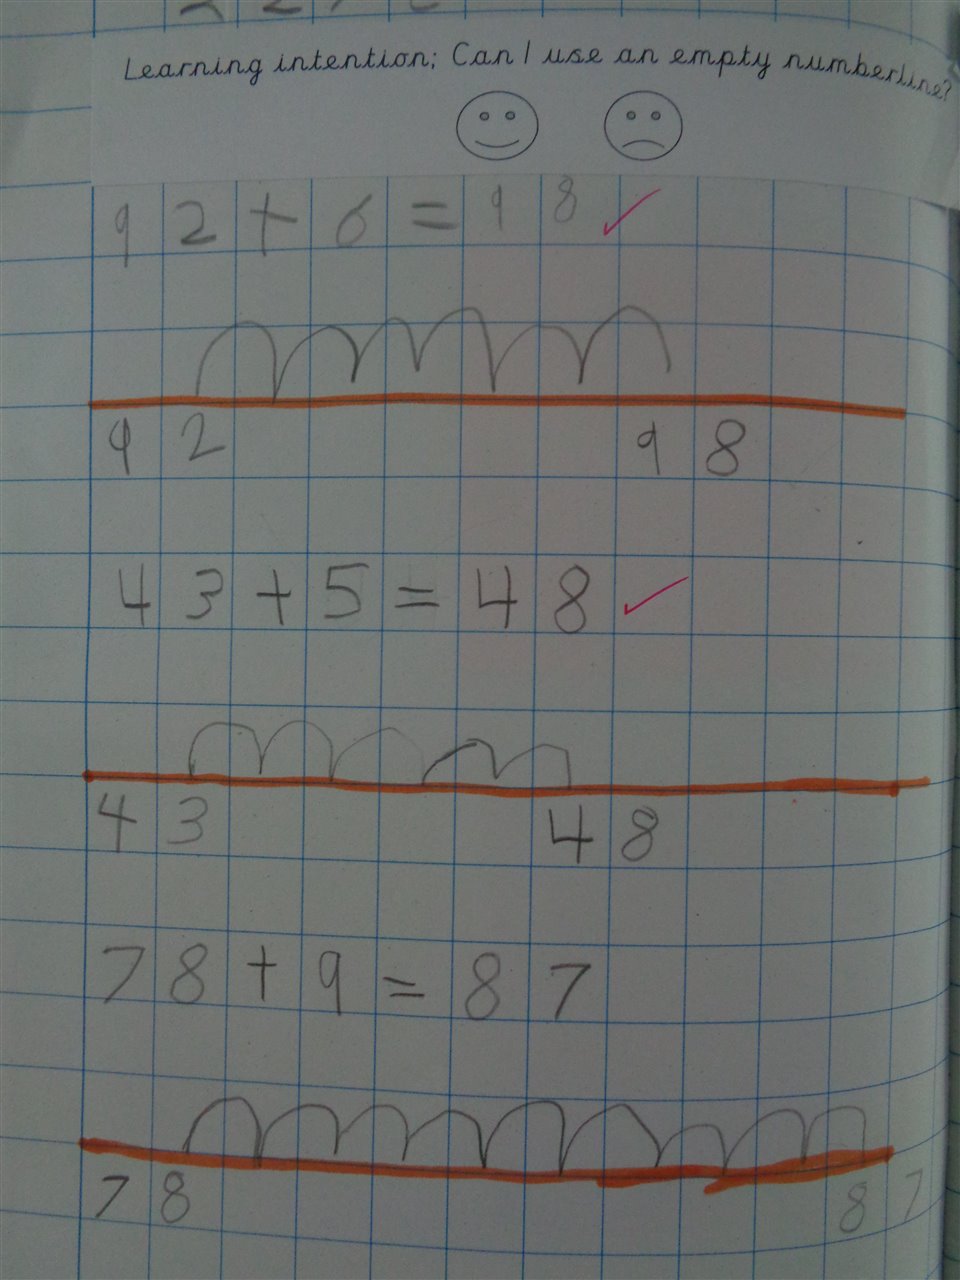 Learning intention; Can I use an empty numberline?
92+6=98
92 98
43+5=48
43 48
78+9=87
78 87